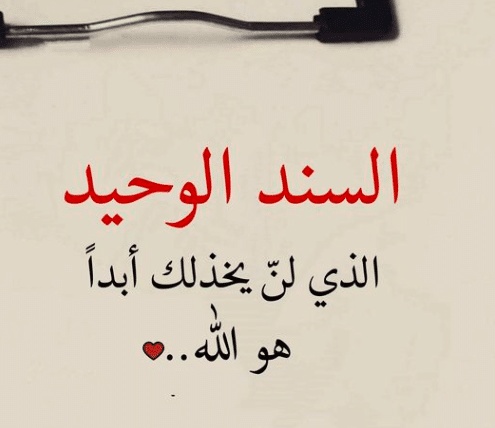 السند الوحيد
الذي لنّ يخذلك أبداً
هو الله..❤